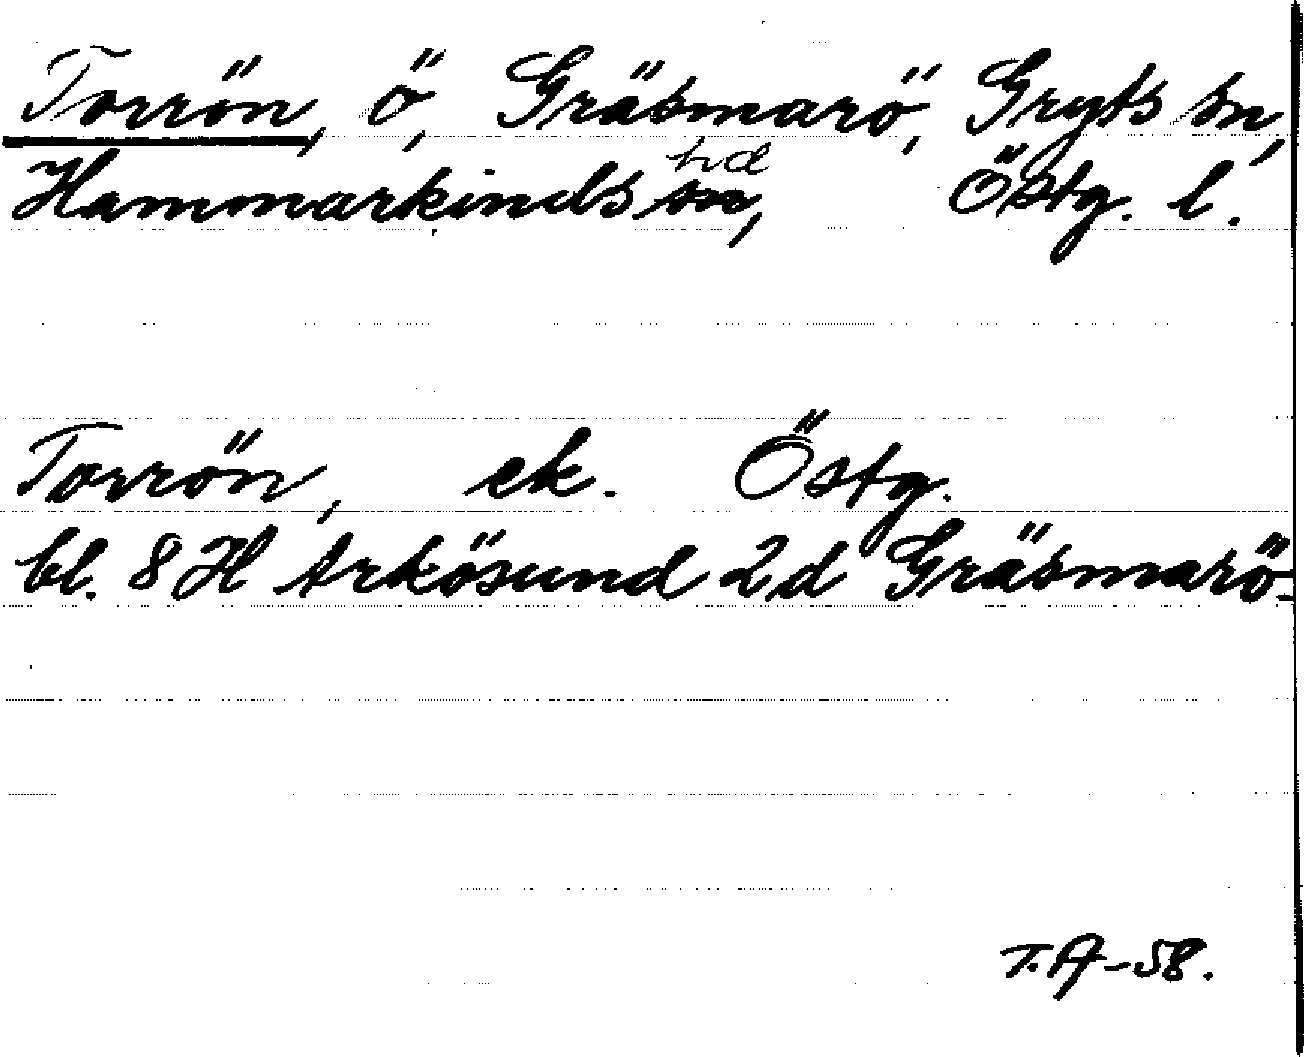 Torrön, ö, Gräsmarö, Gryts sn,
Hammarkinds hd sn, Östg. l.
Torrön, ek. Östg.
bl. 8 H Arkösund 2d Gräsmarö-
T.A-58.